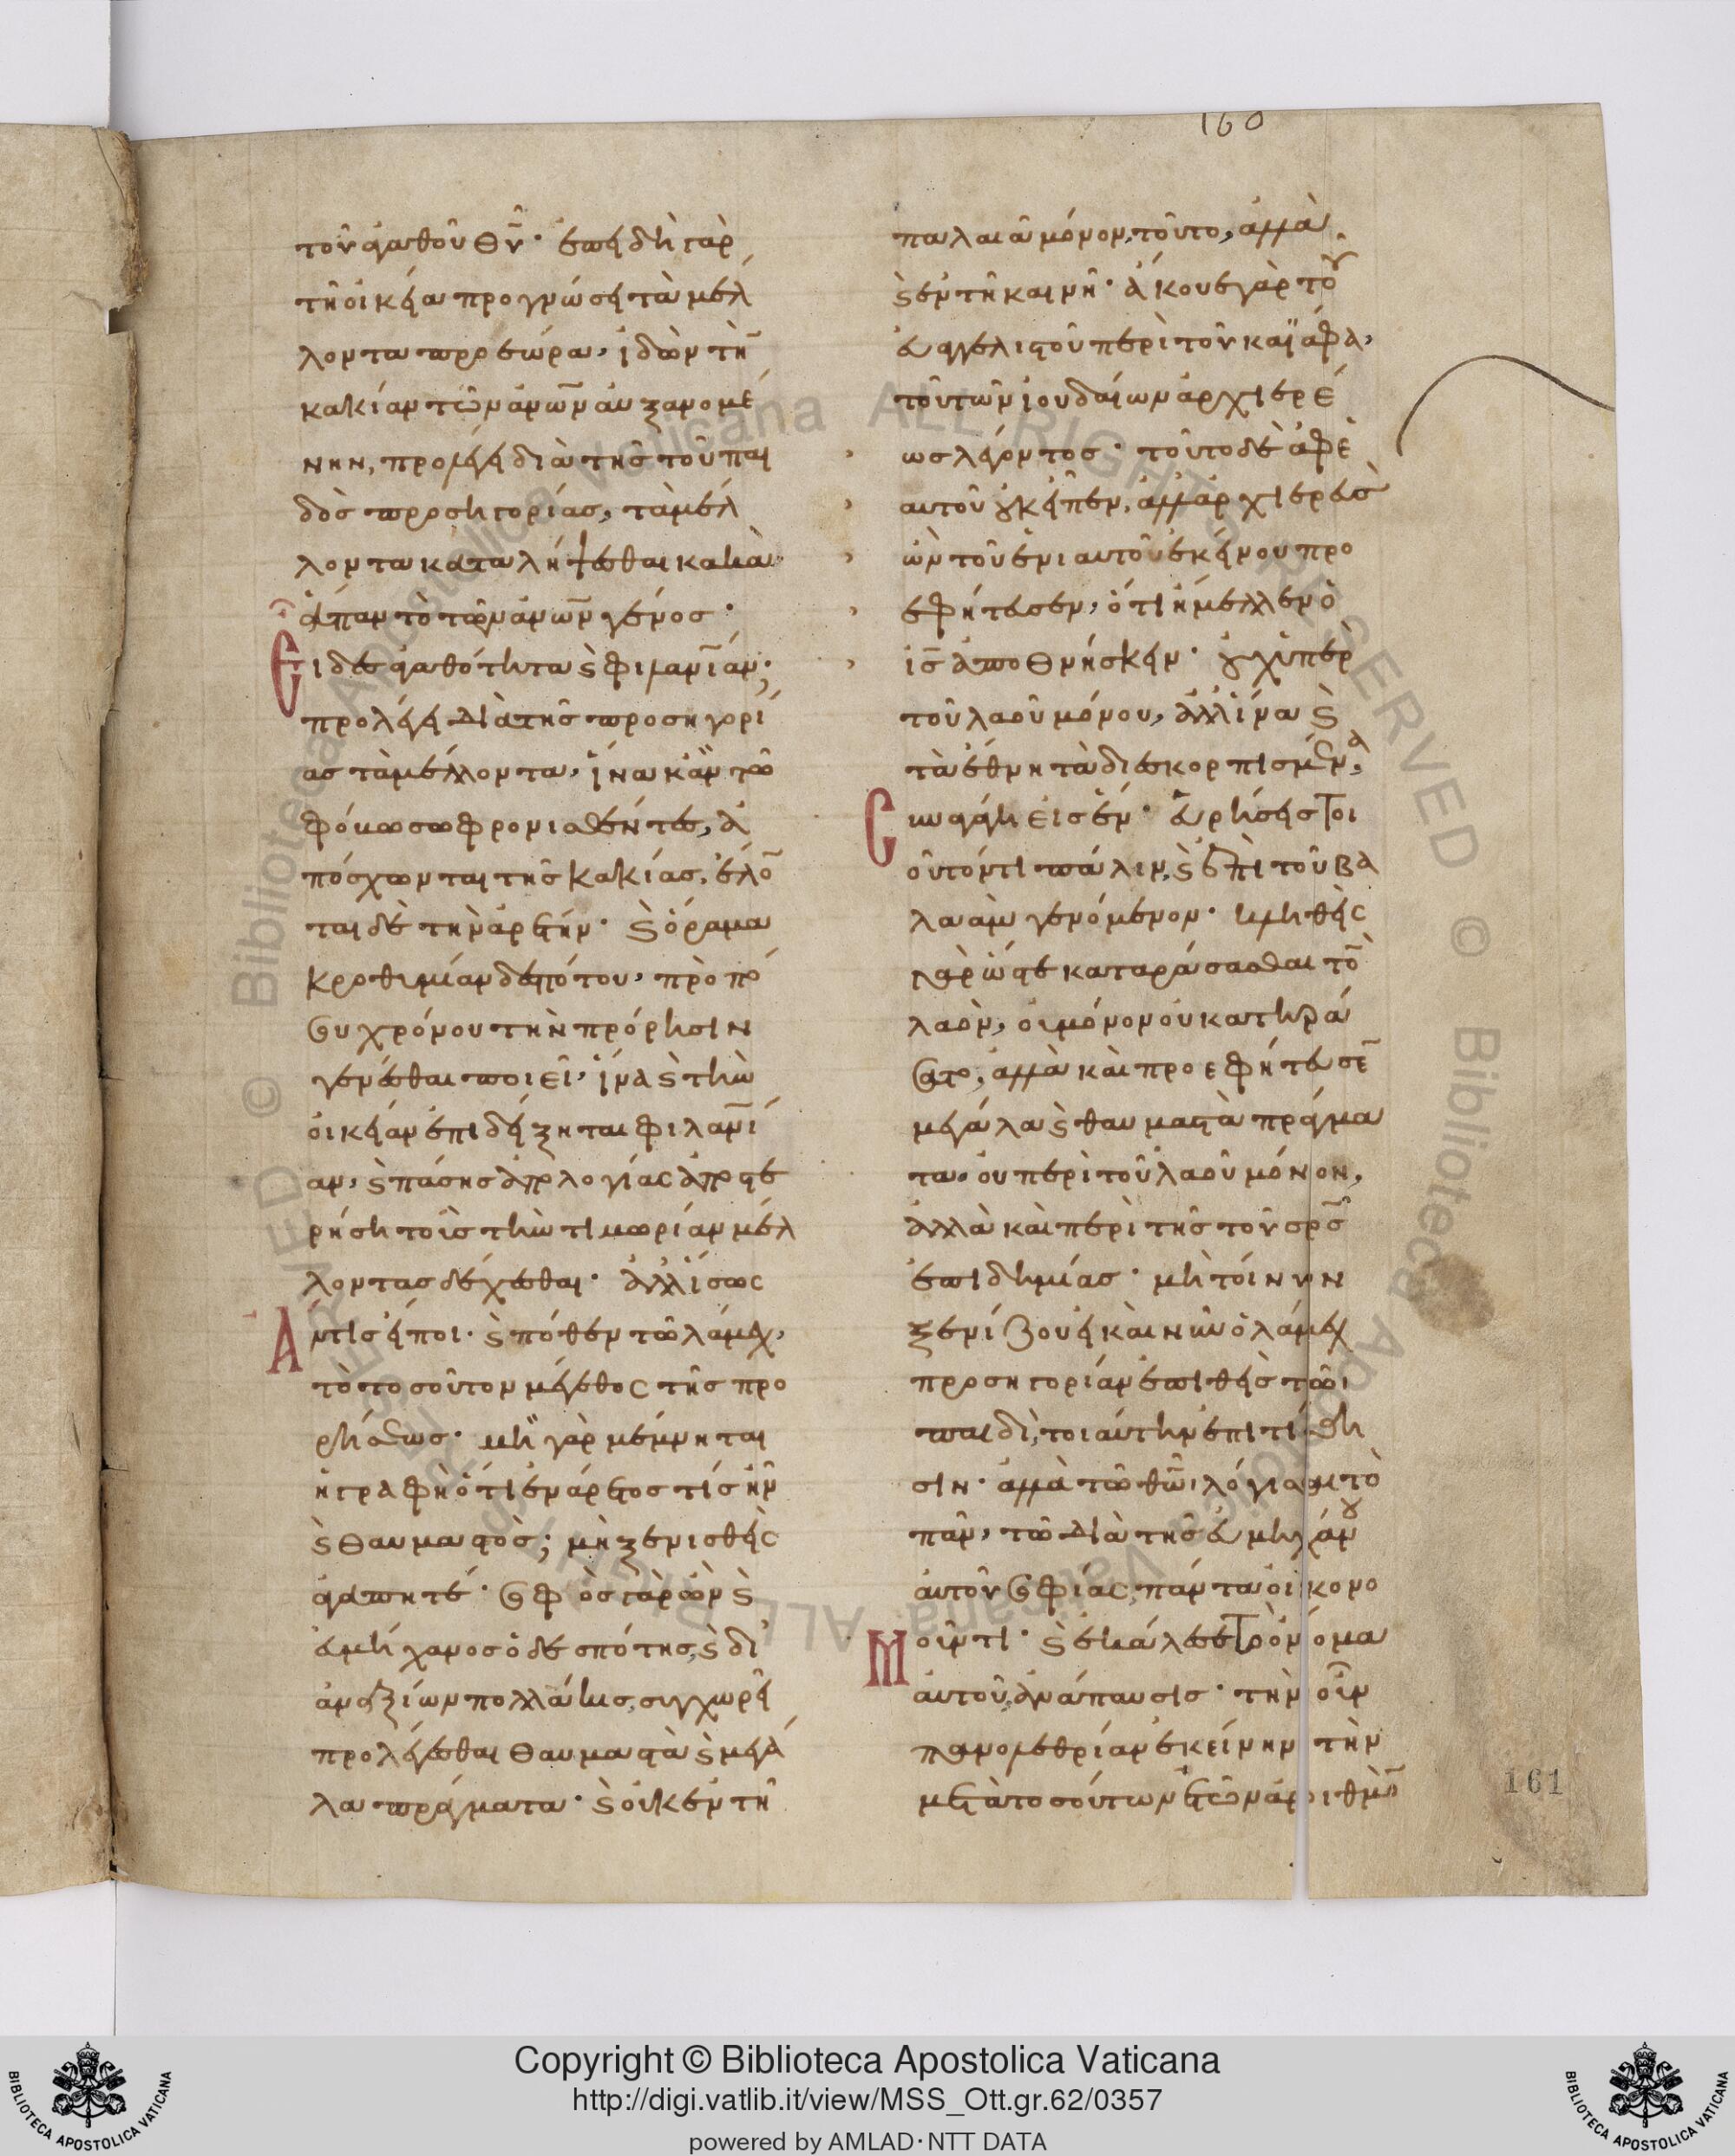 160
τοῦ ἀγαθοῦ θῦ· ἐπειδὴ γὰρ
τῆ οἰκεία προγνώσει τὰ μέλ
λοντα προεώρα, ἰδὼν τὴν
κακίαν τῶν ἀνων αὐξανομέ
νην, προλέγει διὰ τῆς τοῦ παι
δὸς προσηγορίας, τὰ μέλ
λοντα καταλήψεσθαι κακὰ
ἅπαν τὸ τῶν ἀνων γένος·
Εἶδες ἀγαθότητα καὶ φιλανίαν;
προλέγει διὰ τῆς προσηγορί
ας τὰ μέλλοντα, ἵνα κἂν τῶ
φόβω σωφρονισθέντες, ἀ
πόσχωνται τῆς κακίας, ἕλων
ται δὲ τὴν ἀρετήν· καὶ ὅρα μα
κροθυμίαν δεσπότου, πρὸ πό
σου χρόνου τὴν πρόρρησιν
γενέσθαι ποιεῖ, ἵνα καὶ τὴν
οἰκείαν ἐπιδείξηται φιλανί
αν, καὶ πάσης ἀπολογίας ἀποστε
ρήση τοὺς τὴν τιμωρίαν μέλ
λοντας δέχεσθαι· ἀλλ' ἴσως
Ἄν τις εἴποι· καὶ πόθεν τῶ λάμεχ,
τὸ τοσοῦτον μέγεθος τῆς προ
ρρήσεως· μὴ γὰρ μέμνηται
ἡ γραφὴ ὅτι ἐνάρετός τίς ἦν
καὶ θαυμαστός; μὴ ξενισθεῖς
ἀγαπητέ· σοφὸς γὰρ ὢν καὶ
εὐμήχανος ὁ δεσπότης, καὶ δι'
ἀναξίων πολλάκις, συγχωρεῖ
προλέγεσθαι θαυμαστὰ καὶ μεγά
λα πράγματα· καὶ οὐκ ἐν τῆ
παλαιᾶ μόνον, τοῦτο, ἀλλὰ
καὶ ἐν τῆ καινῆ· ἄκουε γὰρ τοῦ
εὐαγγελιστοῦ περὶ τοῦ καϊάφα,
τοῦ τῶν ἰουδαίων ἀρχιερέ
ως λέγοντος· τοῦτο δὲ ἀφ' ἑ
αυτοῦ οὐκ εἶπεν, ἀλλ' ἀρχιερεὺς
ὢν τοῦ ἐνιαυτοῦ ἐκείνου προ
εφήτευσεν, ὅτι ἤμελλεν ὁ
ἰς ἀποθνήσκειν· οὐχ ὑπὲρ
τοῦ λαοῦ μόνου, ἀλλ' ἵνα καὶ
τὰ ἔθνη τὰ διεσκορπισμένα,
Συναγάγη εἰς ἕν· εὑρήσεις τοι
οῦτόν τι πάλιν, καὶ ἐπὶ τοῦ βα
λαὰμ γενόμενον· κληθεὶς
γὰρ ὥστε καταράσασθαι τὸν
λαὸν, οὐ μόνον οὐ κατηρά
σατο, ἀλλὰ καὶ προεφήτευσεν
μεγάλα καὶ θαυμαστὰ πράγμα
τα, οὐ περὶ τοῦ λαοῦ μόνον,
ἀλλὰ καὶ περὶ τῆς τοῦ σρς
ἐπιδημίας· μὴ τοίνυν
ξενίζου εἰ καὶ νῦν ὁ λάμεχ
προσηγορίαν ἐπιθεὶς τῶι
παιδὶ, τοιαύτην ἐπιτίθη
σιν· ἀλλὰ τῶ θωι λόγισαι τὸ
πᾶν, τῶ διὰ τῆς εὐμηχάνου
αὐτοῦ σοφίας, πάντα οἰκονο
Μοῦντι· καὶ ἐκάλεσε τὸ ὄνομα
αὐτοῦ, ἀνάπαυσις· τὴν οὖν
πανολεθρίαν ἐκείνην τὴν
μετὰ τοσούτων ἐτῶν ἀριθμὸν
161
Copyright © Biblioteca Apostolica Vaticana
http://digi.vatlib.it/view/MSS_Ott.gr.62/0357
powered by AMLAD·NTT DATA